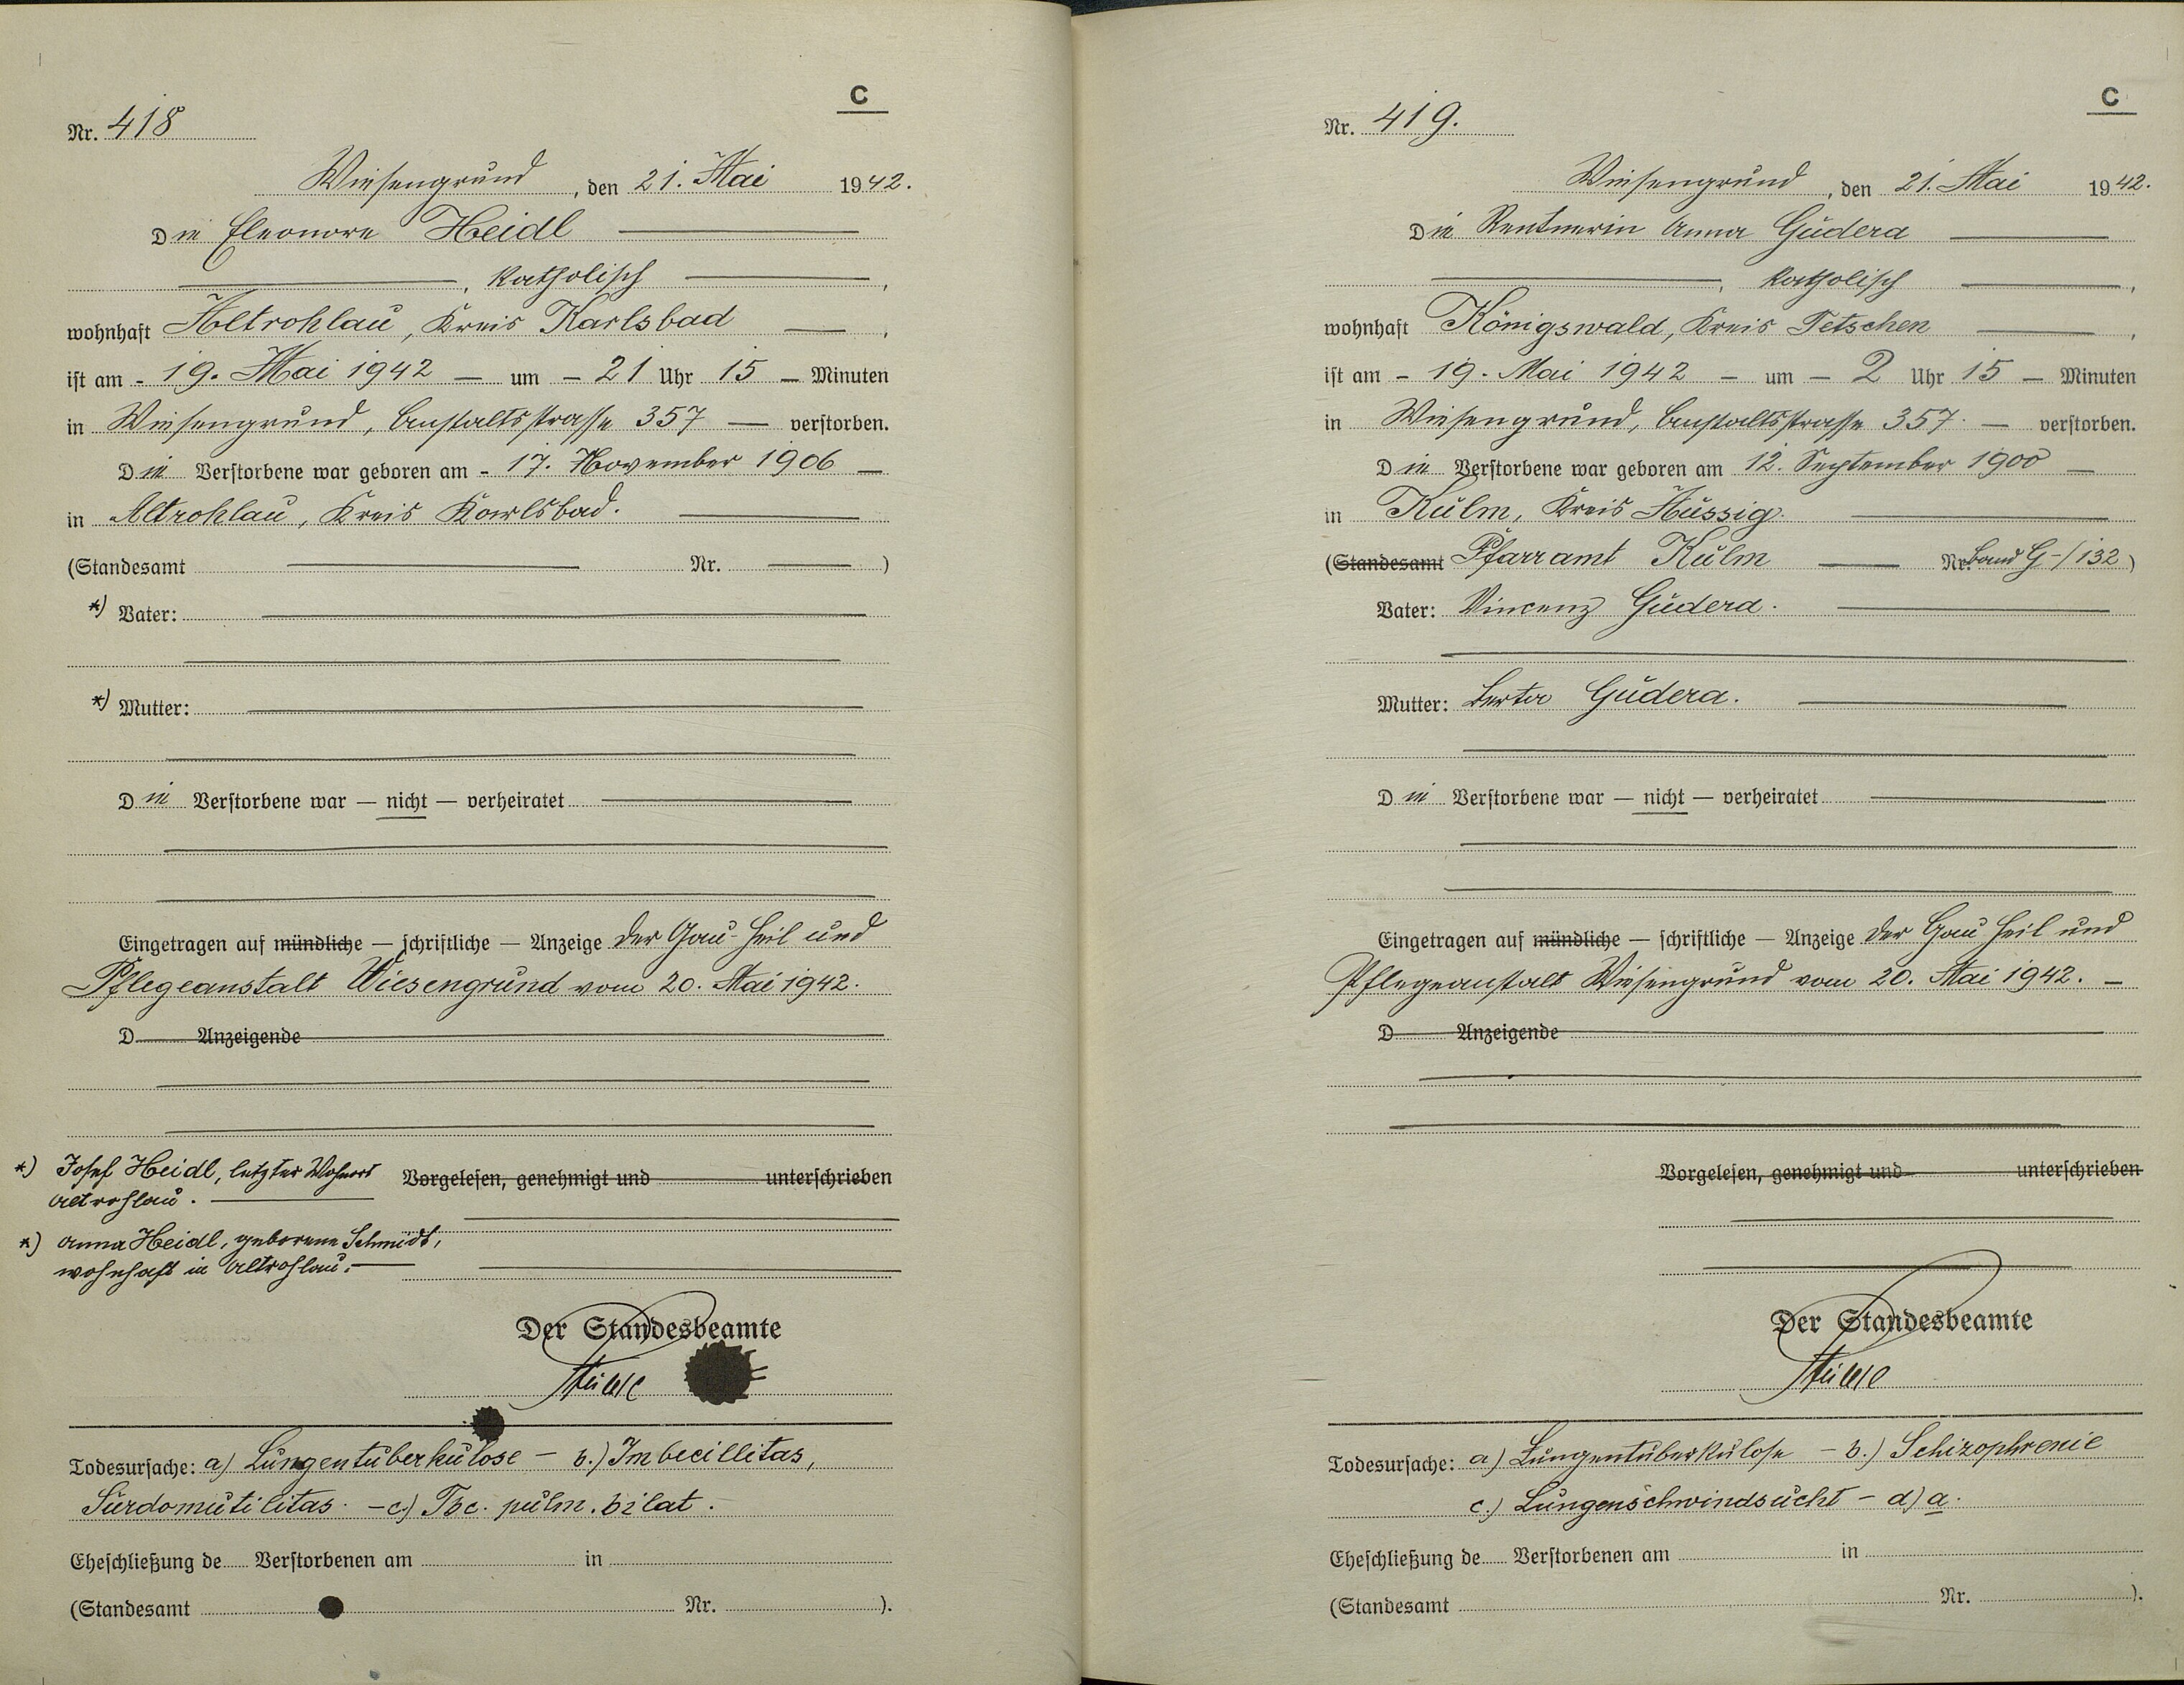 C
Nr. 418
Wiesengrund, den 21. Mai 1942.
Die Eleonore Heidl
, katholisch ,
wohnhaft Altrohlau, Kreis Karlsbad ,
ist am - 19. Mai 1942 — um - 21 Uhr 15 — Minuten
in Wiesengrund, Anstaltsstrasse 357 — verstorben.
Die Verstorbene war geboren am - 17. November 1906 —
in Altrohlau, Kreis Karlsbad.
(Standesamt Nr. )
*) Vater:
*) Mutter:
Die Verstorbene war — nicht — verheiratet
Eingetragen auf mündliche — schriftliche — Anzeige der Gau-Heil und
Pflegeanstalt Wiesengrund vom 20. Mai 1942.
D Anzeigende
*) Josef Heidl, letzter Wohnort
Altrohlau.
Vorgelesen, genehmigt und unterschrieben
*) Anna Heidl, geborene Schmidt,
wohnhaft in Altrohlau.
Der Standesbeamte
Todesursache: a) Lungentuberkulose - b.) Imbecillitas,
Surdomutilitas. - c.) Tbc. pulm. bilat.
Eheschließung de Verstorbenen am in
(Standesamt Nr. ).
C
Nr. 419.
Wiesengrund, den 21. Mai 1942.
Die Rentnerin Anna Gudera
, katholisch ,
wohnhaft Königswald, Kreis Tetschen ,
ist am - 19. Mai 1942 - um - 2 Uhr 15 — Minuten
in Wiesengrund, Anstaltsstrasse 357. — verstorben.
Die Verstorbene war geboren am 12. September 1900 —
in Kulm, Kreis Aussig.
(Standesamt Pfarramt Kulm Nr. Band G-/132)
Vater: Vincenz Gudera.
Mutter: Berta Gudera.
Die Verstorbene war — nicht — verheiratet
Eingetragen auf mündliche — schriftliche — Anzeige der Gau Heil und
Pflegeanstalt Wiesengrund vom 20. Mai 1942. —
D Anzeigende
Vorgelesen, genehmigt und unterschrieben
Der Standesbeamte
Todesursache: a) Lungentuberkulose - b.) Schizophrenie
c.) Lungenschwindsucht - d) a.
Eheschließung de Verstorbenen am in
(Standesamt Nr. ).